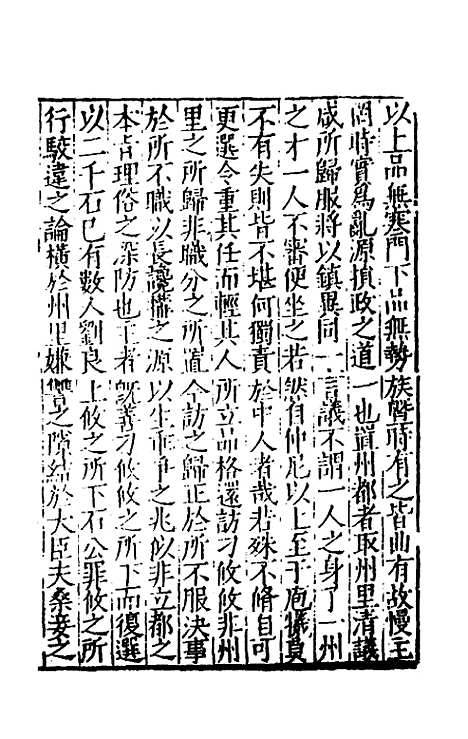 以上品無寒門下品無勢族暨時有之皆曲有故慢主
罔時實爲亂源損政之道一也道州都者取州里清議
咸所歸服將以鎮異同一言議不謂一人之身了一州
之才一人不審便坐之若然自仲尼以上至于庖犧莫
不有失則皆不堪何獨責於中人者哉若殊不脩自可
更選今重其任而輕其人所立品格還訪刁攸攸非州
里之所歸非職分之所置今訪之歸正於所不服決事
於所不職以長讒搆之源以生乖爭之兆似非立都之
本旨理俗之深防也主者旣善刁攸攸之所下而復選
以二千石已有數人劉良上攸之所下石公罪攸之所
行駮違之論橫於州里嫌讎之隙結於大臣夫桑妾之